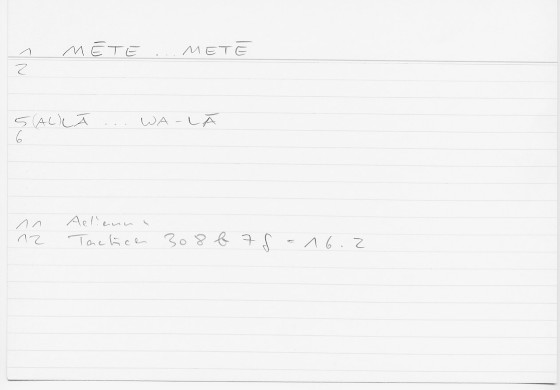 1 MĒTE ... METĒ
2
5 (AL)LĀ ... WA-LĀ
6
11 Aelianus
12 Tactica 308 b 7 f = 16.2